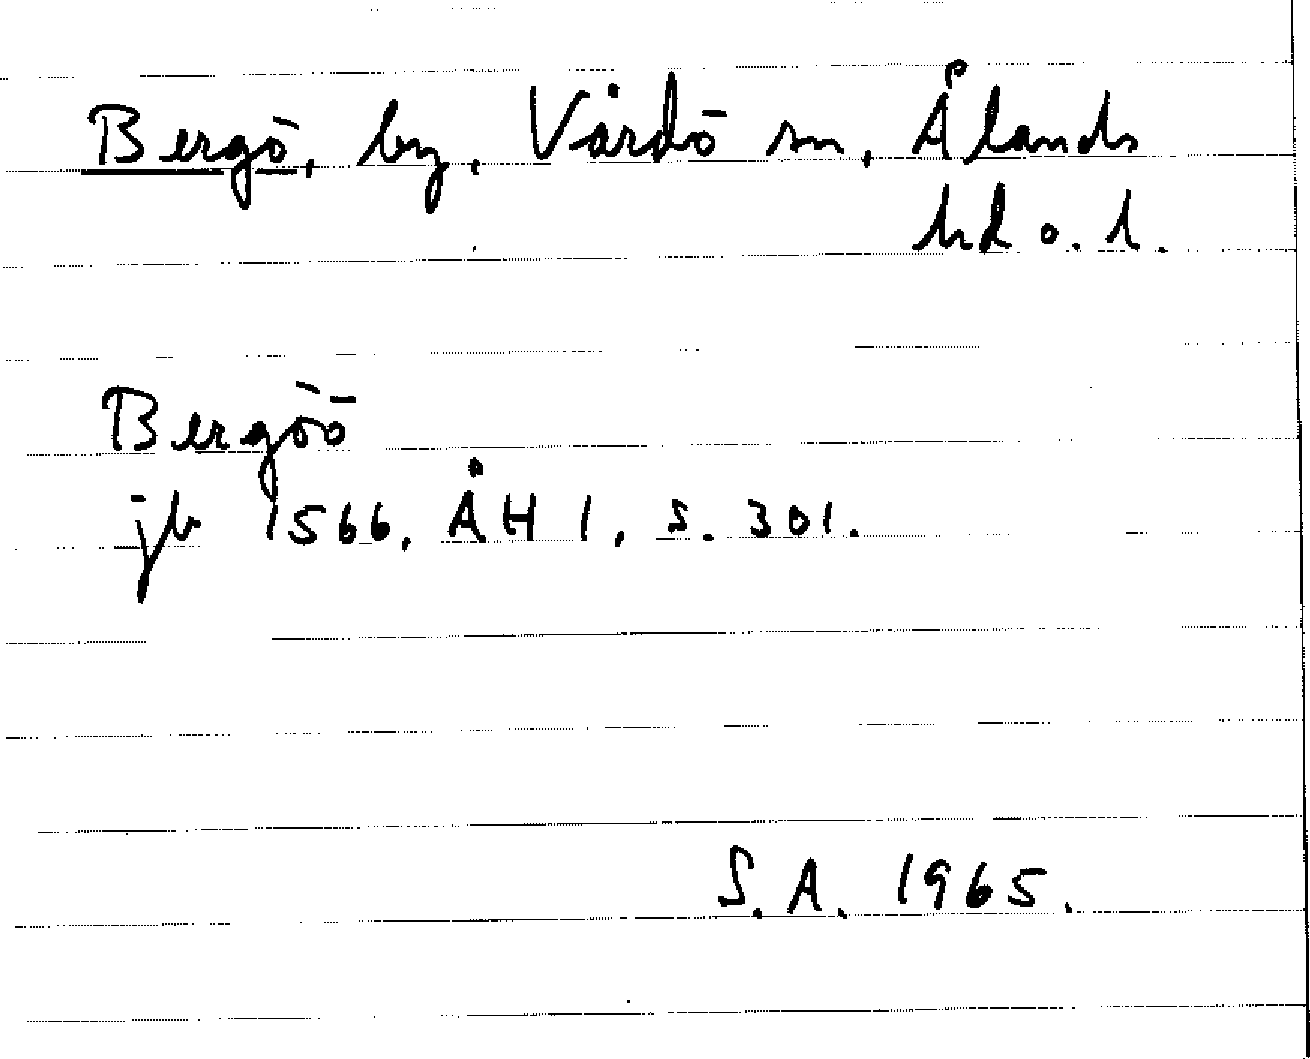 Bergö, by, Vårdö sn, Ålands
hd o. l.
Bergöö
jb 1566, ÅH 1, s. 301.
S.A. 1965.